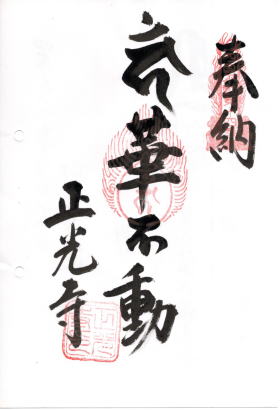 奉納
華不動
正光寺